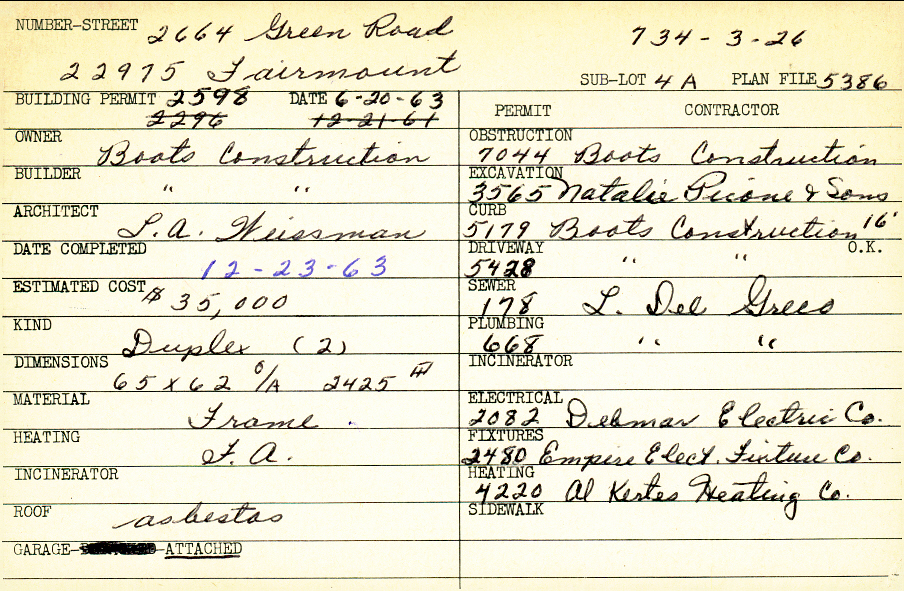 NUMBER-STREET 2664 Green Road 734-3-26
22975 Fairmount SUB-LOT 4A PLAN FILE 5386
BUILDING PERMIT 2598 DATE 6-20-63
2296 12-21-61
OWNER
Boots Construction
BUILDER
" "
ARCHITECT
L.A. Weissman
DATE COMPLETED
12-23-63
ESTIMATED COST $35,000
KIND
Duplex (2)
DIMENSIONS
65 x 62 O/A 2425
MATERIAL
Frame.
HEATING
F.A.
INCINERATOR
ROOF
asbestos
GARAGE- -ATTACHED
PERMIT CONTRACTOR
OBSTRUCTION
7044 Boots Construction
EXCAVATION
3565 Natalie Picone & Sons
CURB
5179 Boots Construction 16'
DRIVEWAY O.K.
5428 " "
SEWER
178 L. Del Greco
PLUMBING
668 " "
INCINERATOR
ELECTRICAL
2082 Delmar Electric Co.
FIXTURES
2480 Empire Elect. Fixture Co.
HEATING
4220 Al Kertes Heating Co.
SIDEWALK